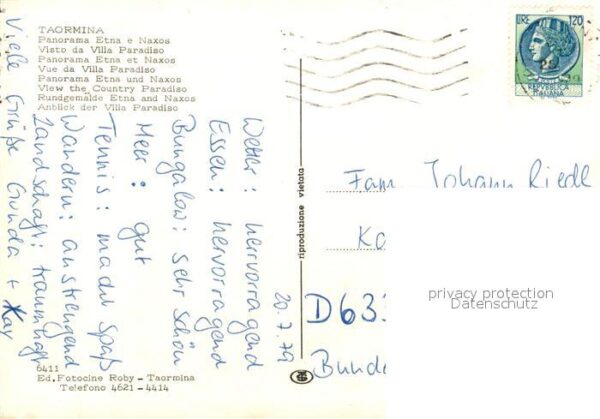 TAORMINA
Panorama Etna e Naxos
Visto da Villa Paradiso
Panorama Etna et Naxos
Vue da Villa Paradiso
Panorama Etna und Naxos
View the Country Paradiso
Rundgemälde Etna and Naxos
Anblick der Villa Paradiso
LIRE 120
REPVBBLICA
ITALIANA
20.7.79
Wetter: hervorragend
Essen: hervorragend
Bungalow: sehr schön
Meer: gut
Tennis: macht Spaß
Wandern: anstrengend
Landschaft: traumhaft
Viele Grüße Gunda + Kay
riproduzione vietata
Fam. Johann Riedl
D 63
privacy protection
Datenschutz
6411
Ed. Fotocine Roby - Taormina
Telefono 4621 - 4414